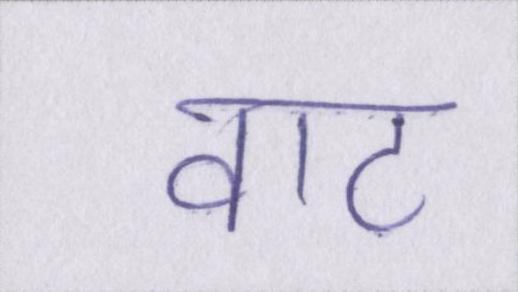 वाट